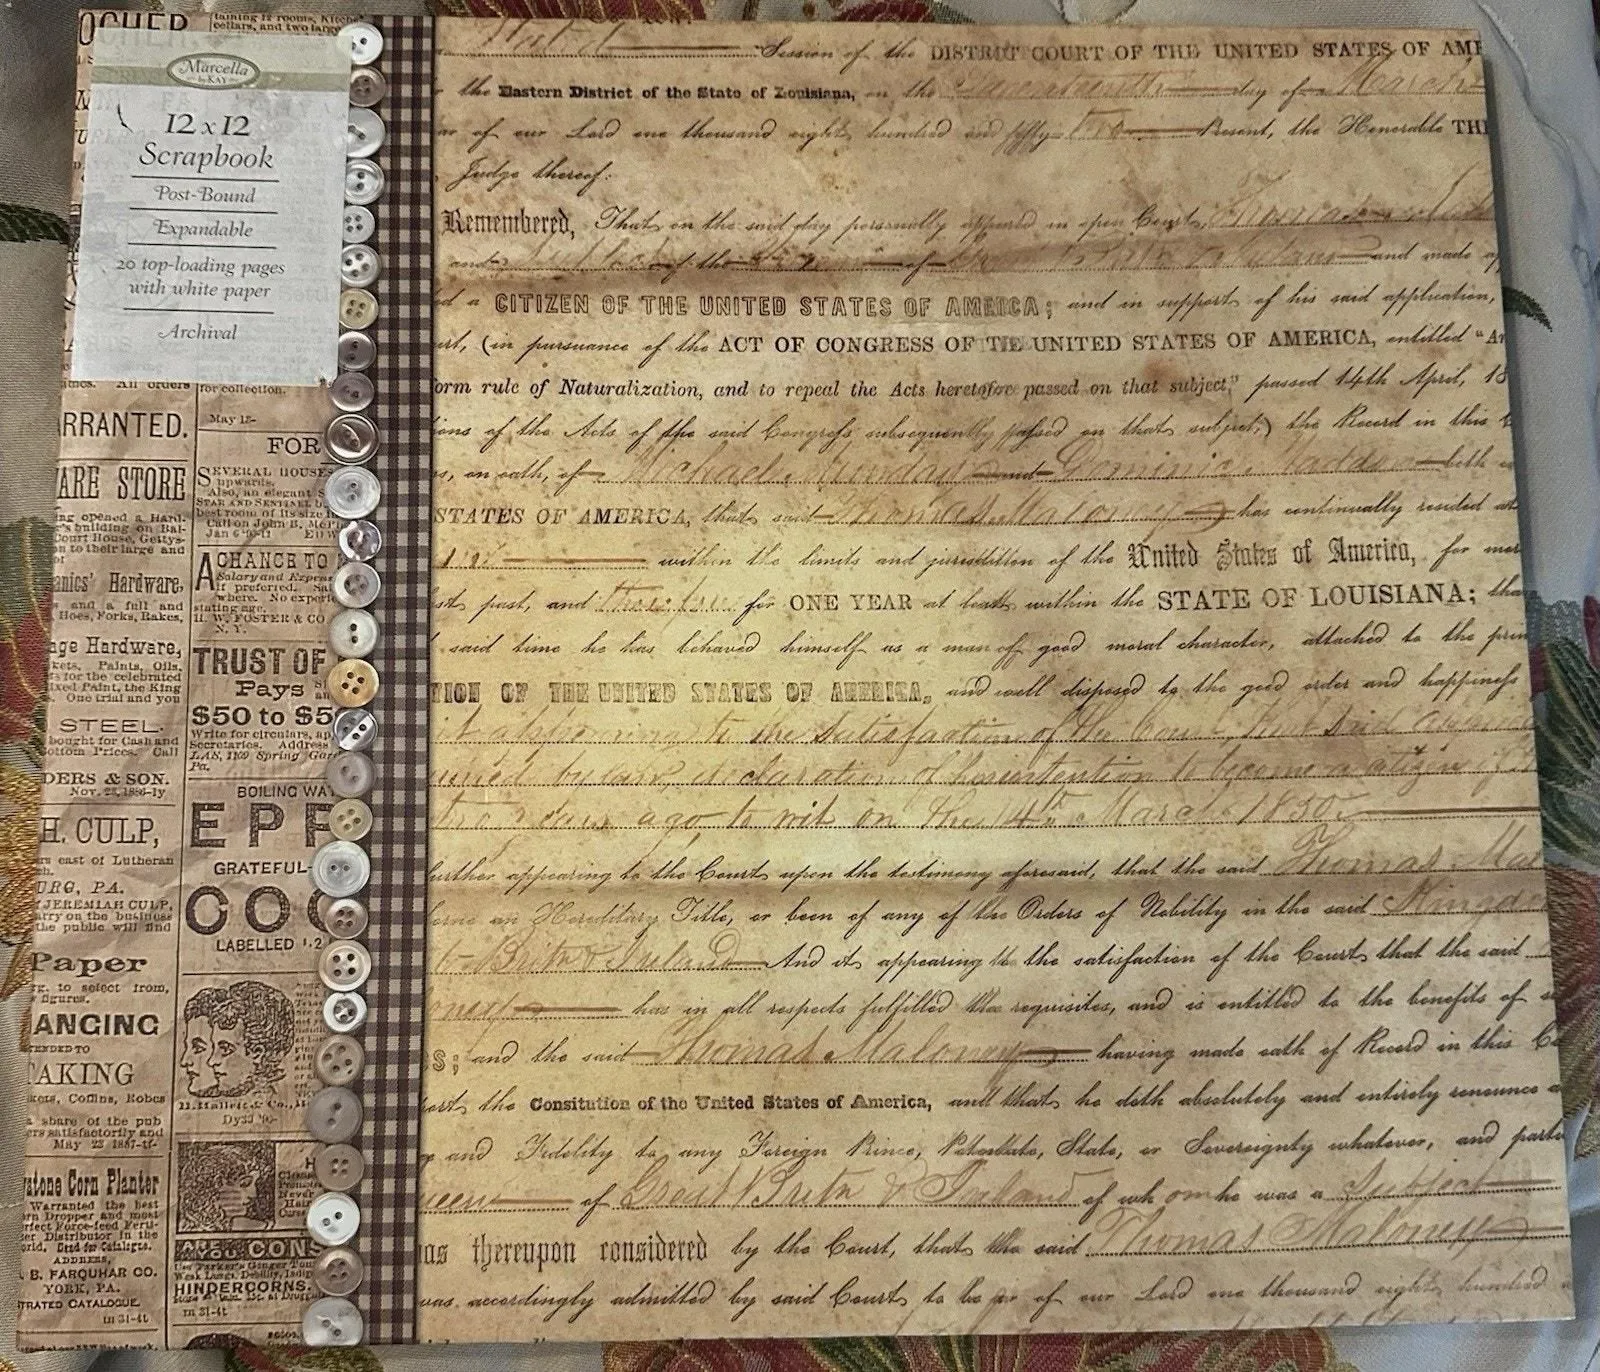 OCHER
taining 12 rooms, Kitche
cellars, and two large
Marcella
by KAY
12 x 12
Scrapbook
Post-Bound
Expandable
20 top-loading pages
with white paper
Archival
All orders
for collection.
May 18-
RRANTED.
FOR
ARE STORE
SEVERAL HOUSES
upwards.
Also, an elegant S
STAR AND SENTINEL b
best room of its size i
Call on John B. McP
Jan 6
ng opened a Hard-
's building on Bal-
Court House, Gettys-
n to their large and
of
anics' Hardware,
and a full and
Hoes, Forks, Rakes,
A CHANCE TO
Salary and Expen
if preferred. Sal
where. No experie
stating age.
H. W. FOSTER & CO
N. Y.
age Hardware,
kets, Paints, Oils,
s for the celebrated
ixed Paint, the King
One trial and you
TRUST OF
Pays
$50 to $5
Write for circulars, ap
Secretaries. Address
LAS, 1109 Spring Gar
Pa.
STEEL.
bought for Cash and
ottom Prices. Call
DERS & SON.
Nov. 23, 1886-ly
BOILING WAT
EPP
GRATEFUL-
COC
LABELLED 1-2
H. CULP,
rs east of Lutheran
ch.
URG, PA.
JEREMIAH CULP,
arry on the business
the public will find
Paper
rg. to select from,
figures.
ANGING
TENDED TO
TAKING
kets, Coffins, Robes
a share of the pub
ers satisfactorily and
May 23 1887-tf-
H. Hallett & Co.,
stone Corn Planter
Warranted the best
rn Dropper and most
rfect Force-feed Ferti-
zer Distributor in the
orld. Send for Catalogue.
ADDRESS,
B. FARQUHAR CO.
YORK, PA.
TRATED CATALOGUE.
m 31-4t
ARE YOU CONS
Use Parker's Ginger Ton
HINDERCORNS.
m 31-4t
Session of the DISTRICT COURT OF THE UNITED STATES OF AME
the Eastern District of the State of Louisiana, on the Seventeenth day of March
ar of our Lord one thousand eight hundred and fifty-two Present, the Honorable TH
Judge thereof:
Remembered, That on the said day personally appeared in open Court, Thomas
and of the of and made ap
d a CITIZEN OF THE UNITED STATES OF AMERICA; and in support of his said application,
urt, (in pursuance of the ACT OF CONGRESS OF THE UNITED STATES OF AMERICA, entitled "An
orm rule of Naturalization, and to repeal the Acts heretofore passed on that subject," passed 14th April, 18
ions of the Acts of the said Congress subsequently passed on that subject,) the Record in this C
s, on oath, of Michael and Dominic both
STATES OF AMERICA, that said Thomas Maloney has continually resided
within the limits and jurisdiction of the United States of America, for mor
st past, and for ONE YEAR at least within the STATE OF LOUISIANA; tha
said time he has behaved himself as a man of good moral character, attached to the prin
TION OF THE UNITED STATES OF AMERICA, and well disposed to the good order and happiness
it appearing to the Satisfaction of the Court that said
declaration of his intention to become a citizen of
two years ago to wit on the 14th March 1850
urther appearing to the Court upon the testimony aforesaid, that the said Thomas Mal
orne an Hereditary Title, or been of any of the Orders of Nobility in the said Kingdo
Britn & Ireland And it appearing to the satisfaction of the Court that the said
oney has in all respects fulfilled the requisites, and is entitled to the benefits of
S; and the said Thomas Maloney having made oath of Record in this Co
ort the Consitution of the United States of America, and that he doth absolutely and entirely renounce
and Fidelity to any Foreign Prince, Potentate, State, or Sovereignty whatever, and parti
ueen of Great Britn & Ireland of whom he was a Subject
as thereupon considered by the Court, that the said Thomas Maloney
was accordingly admitted by said Court to be of our Lord one thousand eight hundred